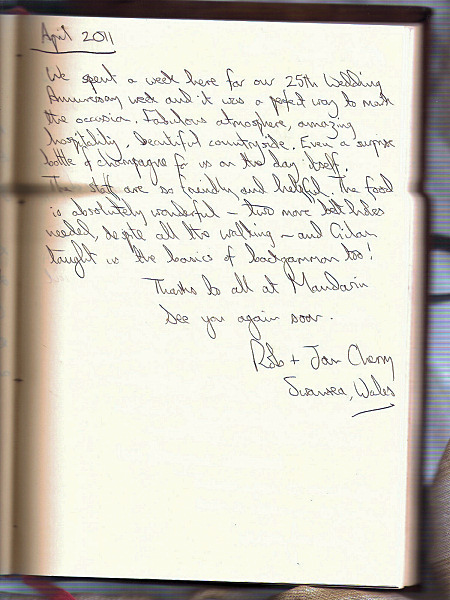 April 2011
We spent a week here for our 25th Wedding
Anniversary week and it was a perfect way to mark
the occasion. Fabulous atmosphere, amazing
hospitality, beautiful countryside. Even a suprise
bottle of champagne for us on the day itself.
The staff are so friendly and helpful. The food
is absolutely wonderful – two more belt holes
needed, despite all the walking – and Cihan
taught us the basics of backgammon too!
Thanks to all at Mandarin
See you again soon.
Rob + Jan Cherry
Swansea, Wales